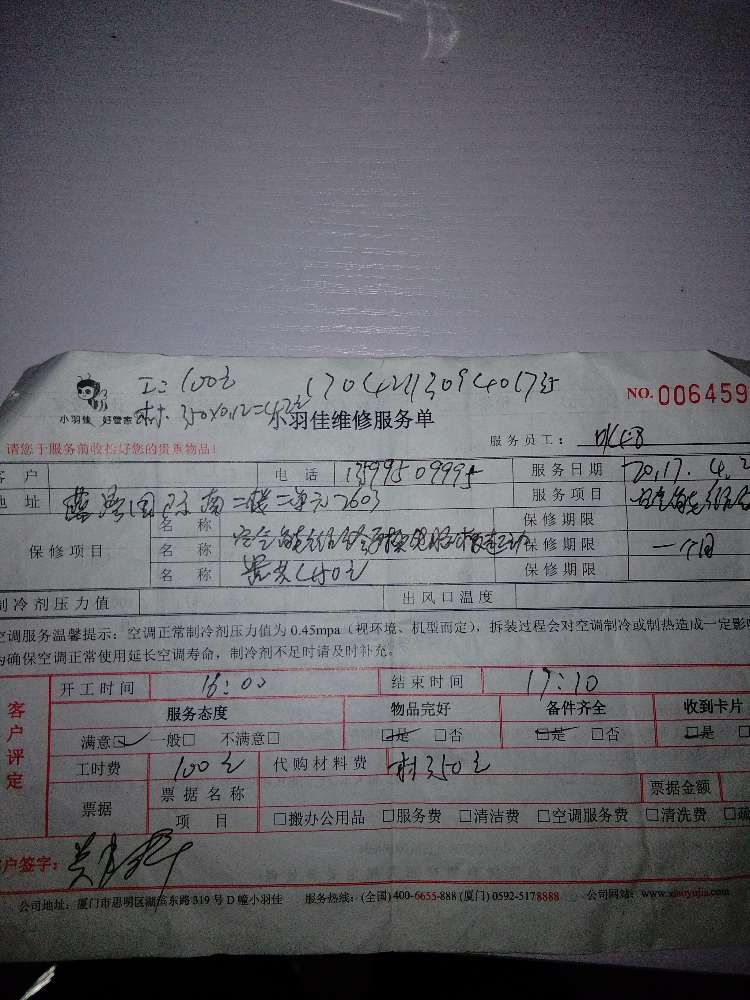 工: 100元 17042113094017
材: 350×0.12=42元
小羽佳 好管家
NO. 006459
小羽佳维修服务单
请您于服务前收捡好您的贵重物品!
服务员工:
客 户 电 话 13599509995 服务日期 2017.4.2
地 址 南二楼二单元2603 服务项目
保修项目
名 称 保修期限
名 称 保修期限 一个月
名 称 450元 保修期限
制冷剂压力值 出风口温度
空调服务温馨提示:空调正常制冷剂压力值为 0.45mpa(视环境、机型而定),拆装过程会对空调制冷或制热造成一定影
为确保空调正常使用延长空调寿命,制冷剂不足时请及时补充。
客户评定
开工时间 16:00 结束时间 17:10
服务态度 物品完好 备件齐全 收到卡片
满意☑ 一般□ 不满意□ □是 □否 □是 □否 □是 □
工时费 100元 代购材料费 材350元
票据 票据名称 票据金额
项 目 □搬办公用品 □服务费 □清洁费 □空调服务费 □清洗费 □疏
客户签字:
公司地址:厦门市思明区湖滨东路 319 号 D 幢小羽佳 服务热线:(全国)400-6655-888 (厦门) 0592-5178888 公司网站:www.xiaoyujia.com